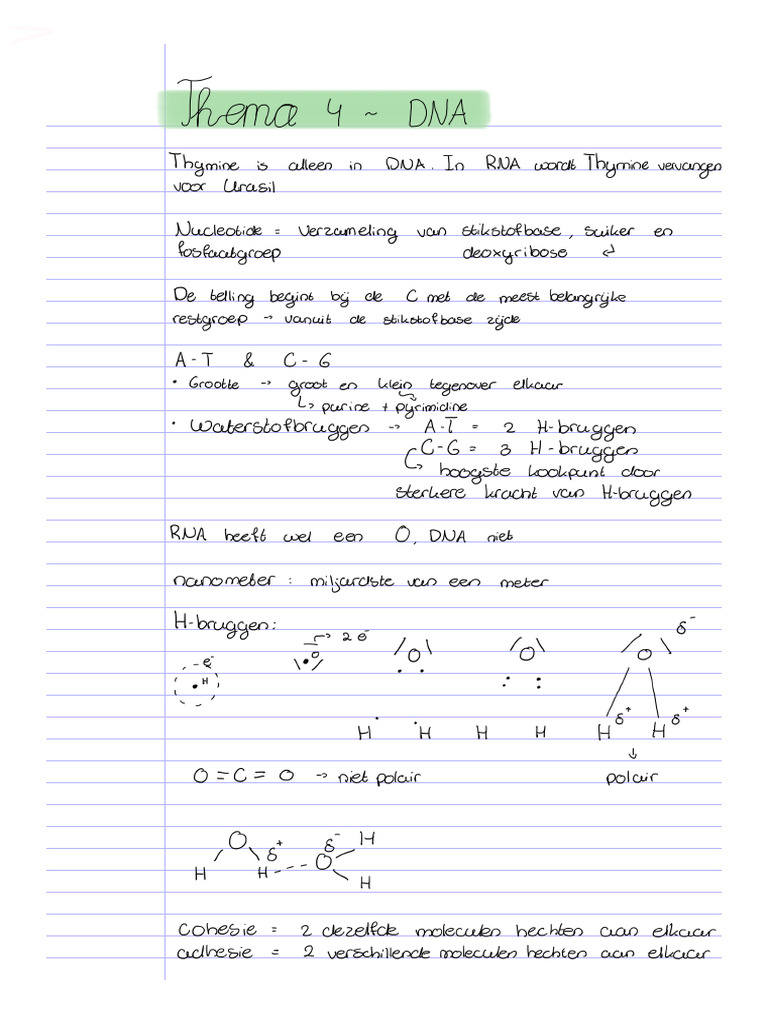 Thema 4 ~ DNA
Thymine is alleen in DNA. In RNA wordt Thymine vervangen
voor Urasil
Nucleotide = verzameling van stikstofbase, suiker en
fosfaatgroep deoxyribose ↲
De telling begint bij de C met de meest belangrijke
restgroep → vanuit de stikstofbase zijde
A-T & C-G
• Grootte → groot en klein tegenover elkaar
↳ purine + pyrimidine
• Waterstofbruggen → A-T = 2 H-bruggen
C-G = 3 H-bruggen
↳ hoogste kookpunt door
sterkere kracht van H-bruggen
RNA heeft wel een O, DNA niet
nanometer : miljardste van een meter
H-bruggen:
→ 2 e⁻
δ⁻
-e⁻
O O O O
H
H H H H H δ⁺ H δ⁺
↓
O = C = O → niet polair polair
O δ⁺ δ⁻ H
H H --- O
H
cohesie = 2 dezelfde moleculen hechten aan elkaar
adhesie = 2 verschillende moleculen hechten aan elkaar